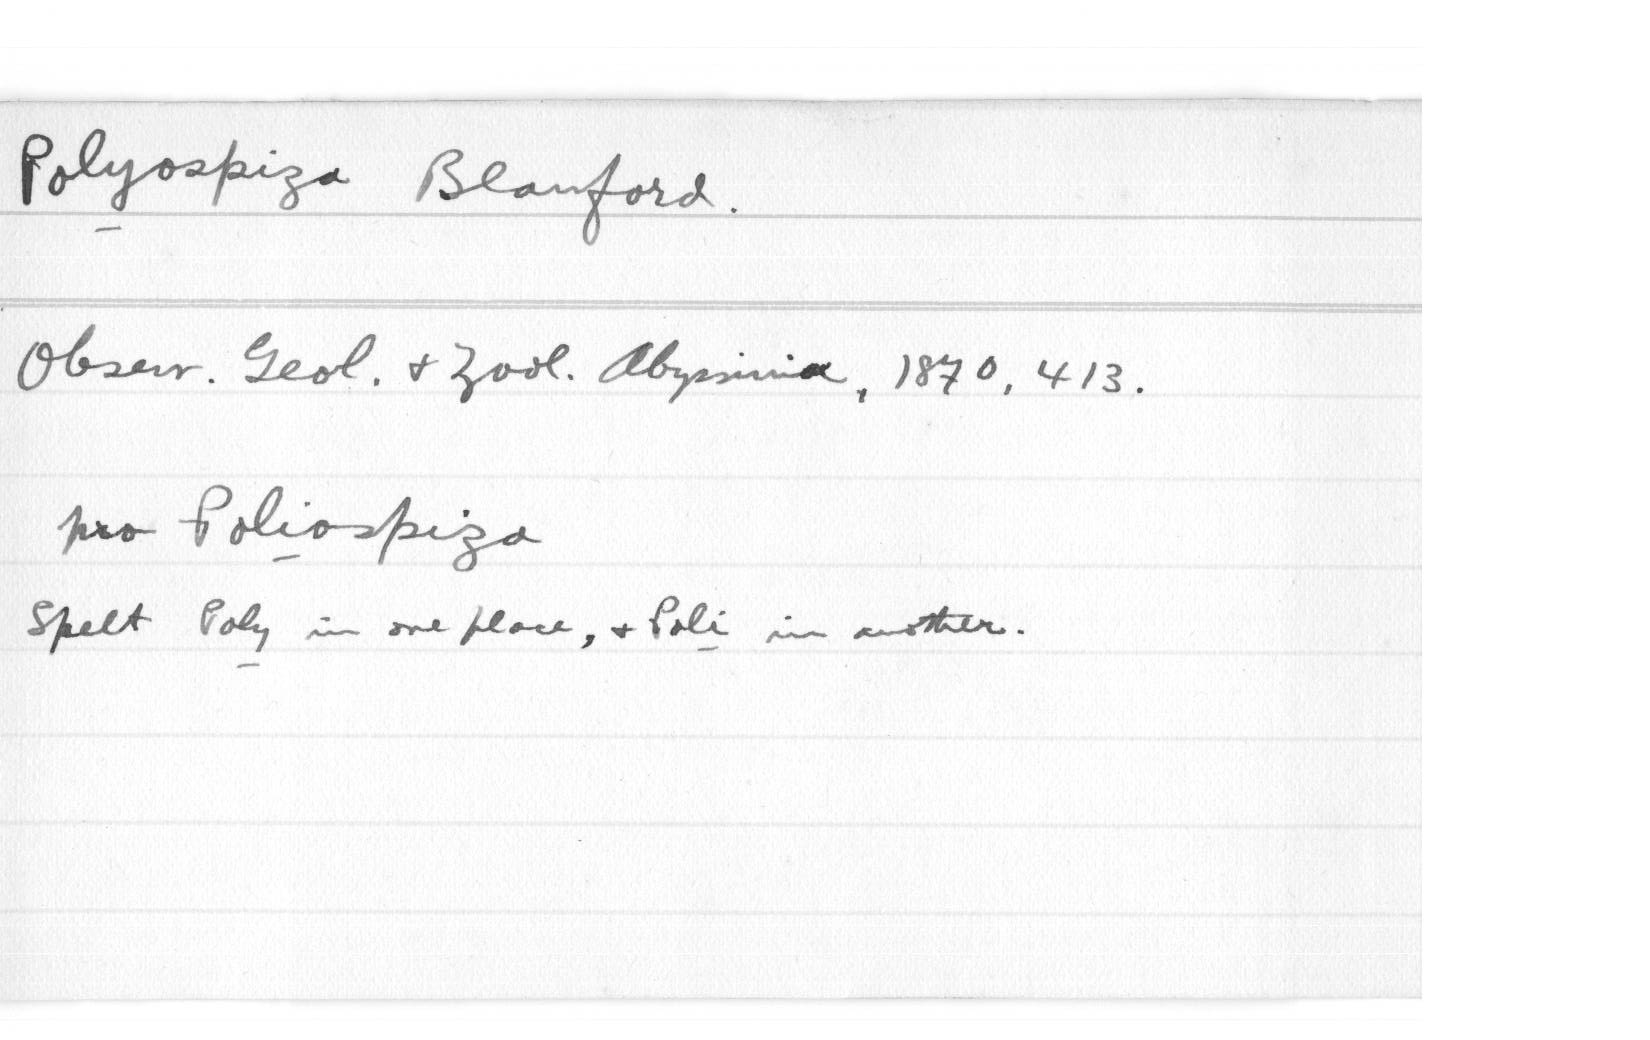 Polyospiza Blanford.
Observ. Geol. & Zool. Abyssinia, 1870, 413.
pro Poliospiza
Spelt Poly in one place, & Poli in another.